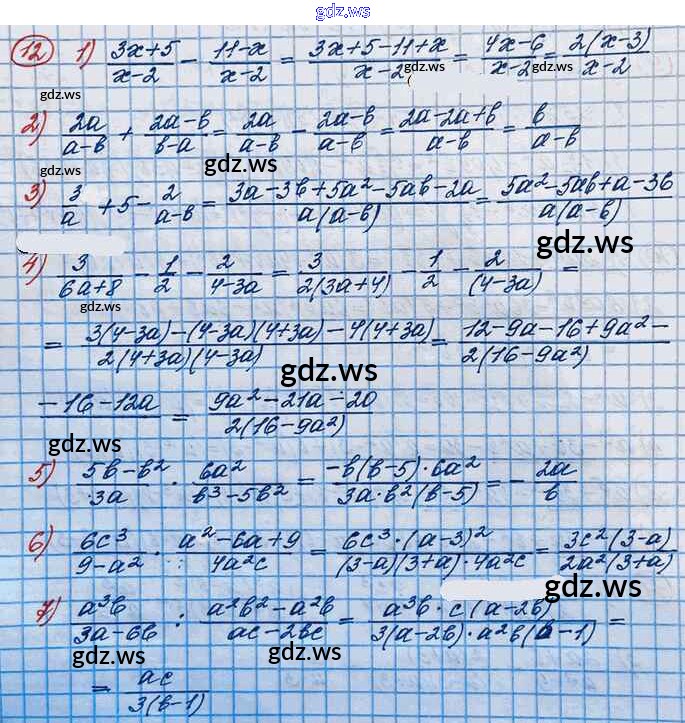 gdz.ws
12 1) (3x+5)/(x-2) - (11-x)/(x-2) = (3x+5-11+x)/(x-2) = (4x-6)/(x-2) = 2(x-3)/(x-2)
gdz.ws gdz.ws gdz.ws
2) 2a/(a-b) + (2a-b)/(b-a) = 2a/(a-b) - (2a-b)/(a-b) = (2a-2a+b)/(a-b) = b/(a-b)
gdz.ws gdz.ws
3) 3/a + 5 - 2/(a-b) = (3a-3b+5a²-5ab-2a)/(a(a-b)) = (5a²-5ab+a-3b)/(a(a-b))
gdz.ws
4) 3/(6a+8) - 1/2 - 2/(4-3a) = 3/(2(3a+4)) - 1/2 - 2/(4-3a) =
gdz.ws
= (3(4-3a)-(4-3a)(4+3a)-4(4+3a))/(2(4+3a)(4-3a)) = (12-9a-16+9a²-
-16-12a)/(2(16-9a²)) = (9a²-21a-20)/(2(16-9a²))
gdz.ws
gdz.ws
5) (5b-b²)/3a · 6a²/(b³-5b²) = (-b(b-5)·6a²)/(3a·b²(b-5)) = - 2a/b
6) 6c³/(9-a²) · (a²-6a+9)/(4a²c) = (6c³·(a-3)²)/((3-a)(3+a)·4a²c) = 3c²(3-a)/(2a²(3+a))
gdz.ws gdz.ws
7) a³b/(3a-6b) : (a²b²-a²b)/(ac-2bc) = (a³b·c(a-2b))/(3(a-2b)·a²b(b-1)) =
gdz.ws gdz.ws
= ac/(3(b-1))